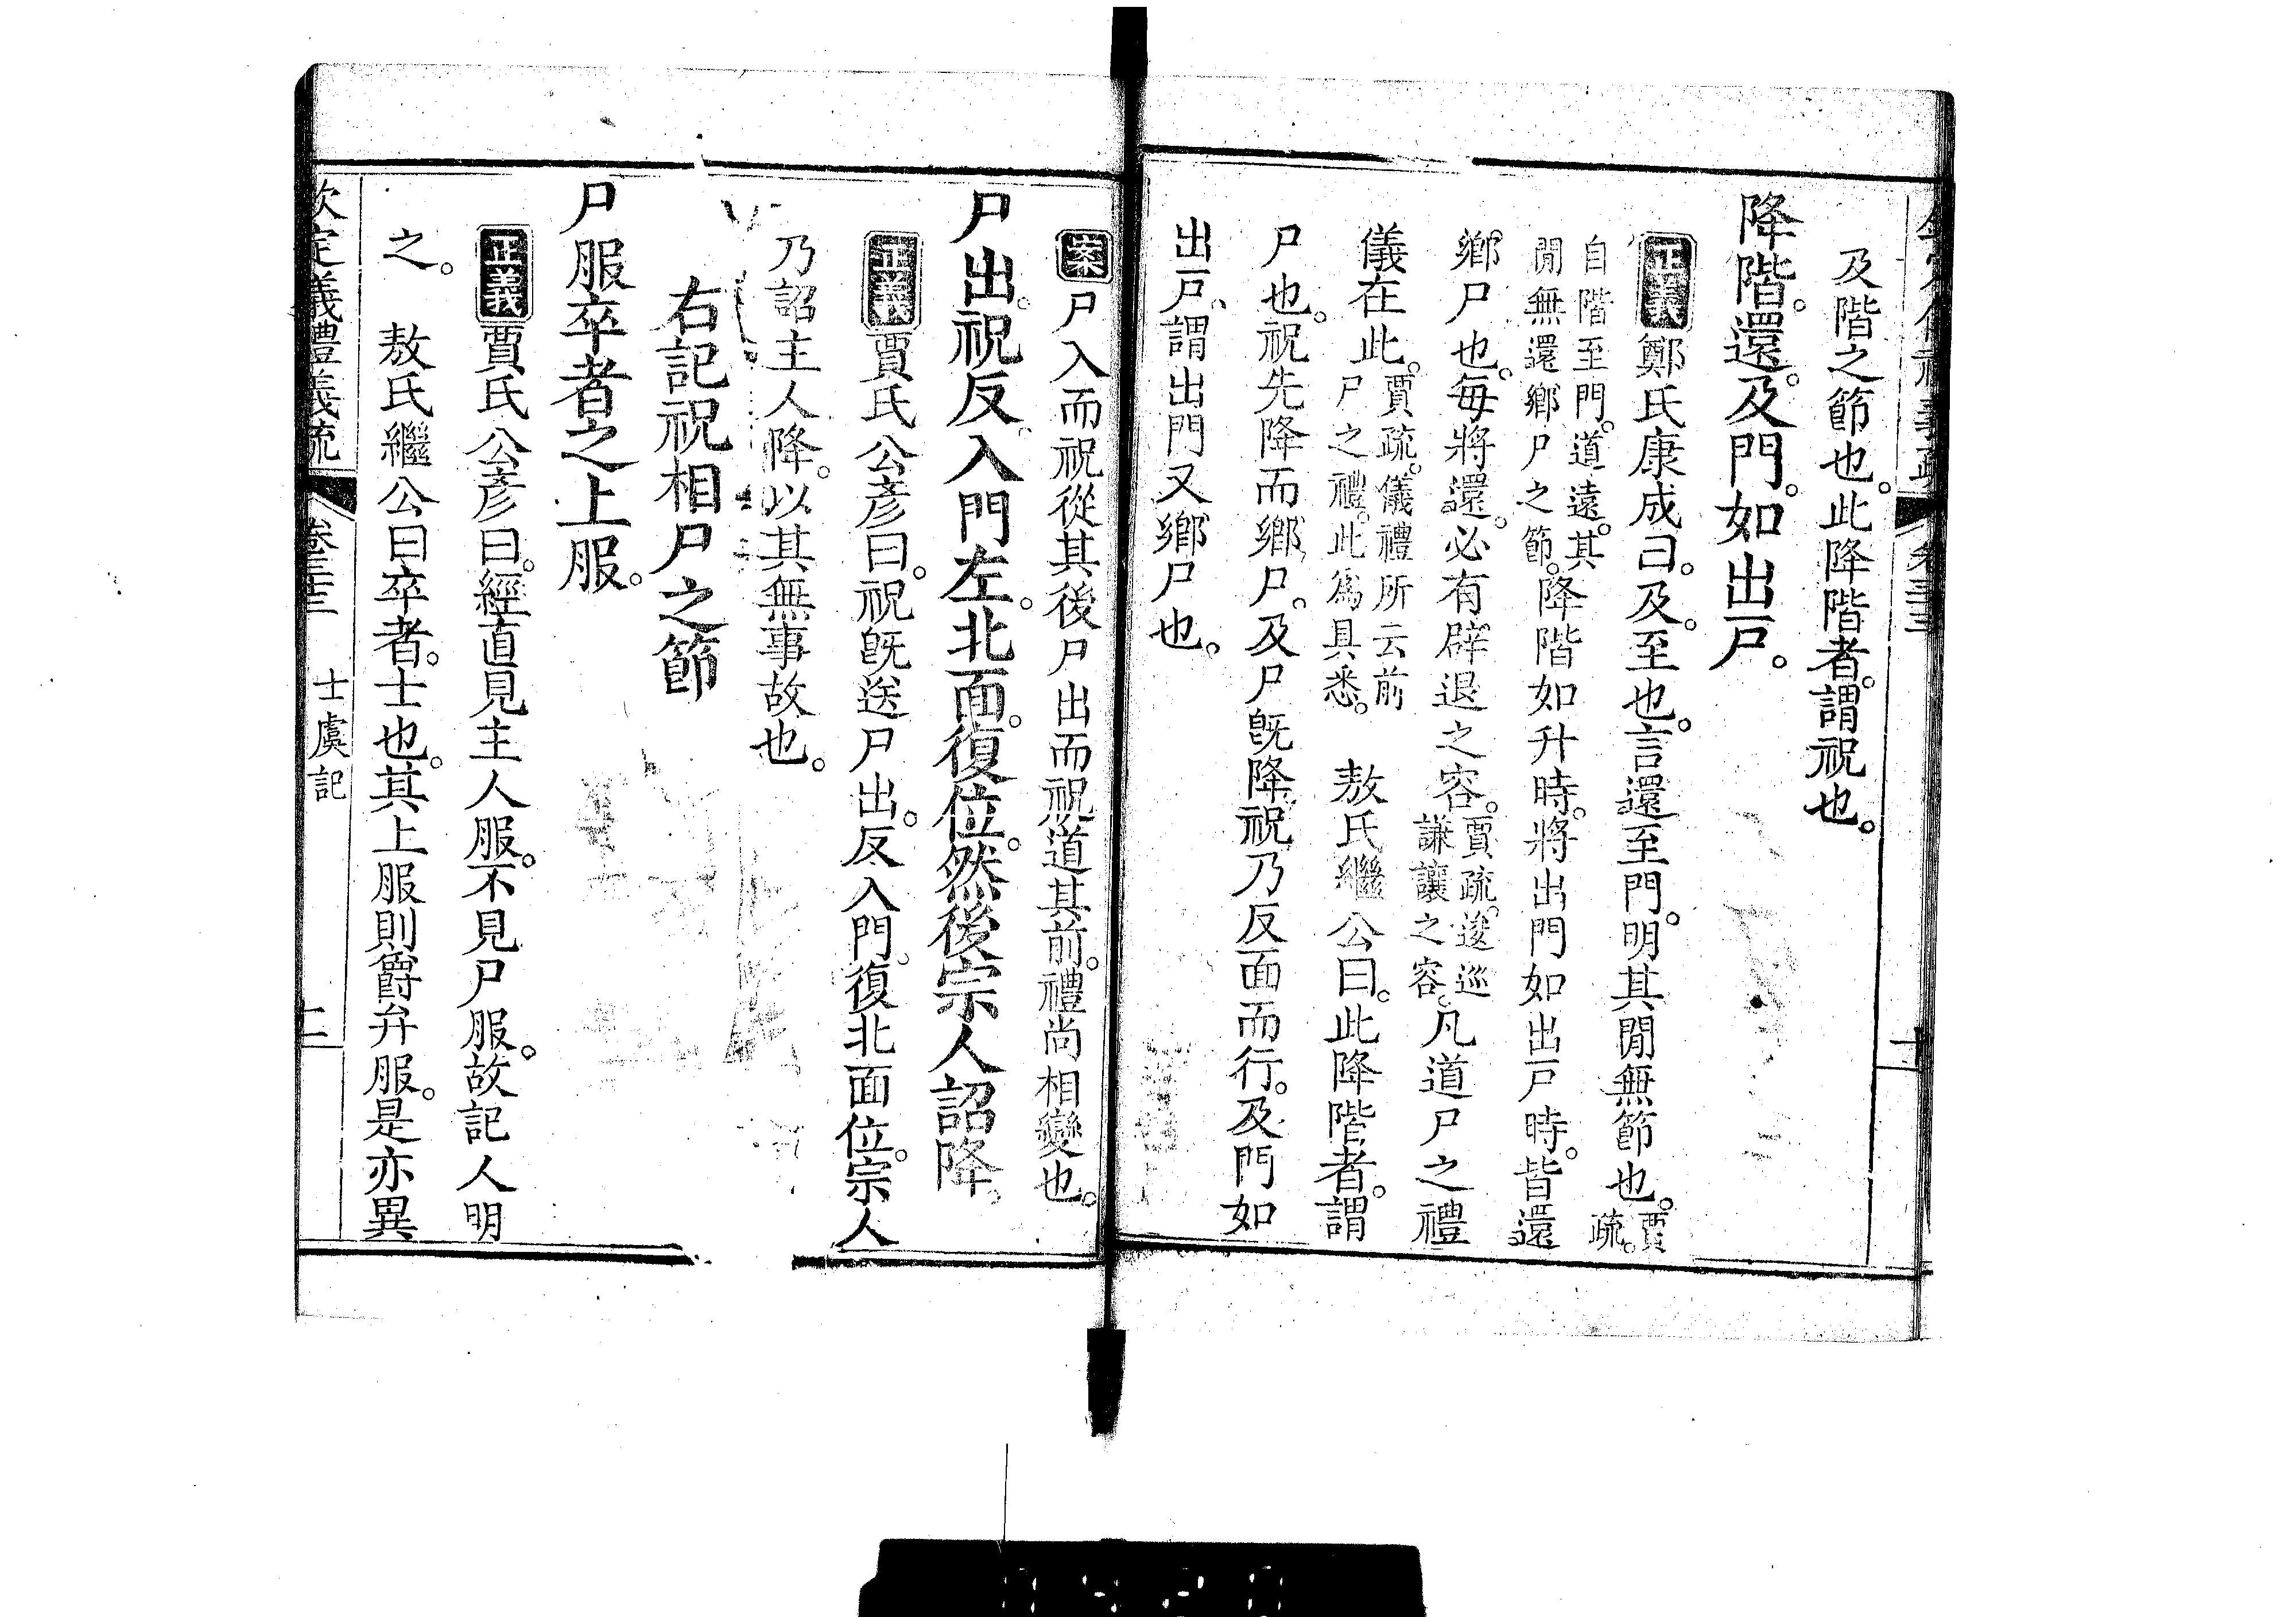 及階之節也。此降階者。謂祝也。
降階。還。及門。如出戸。
正義鄭氏康成曰。及。至也。言還至門。明其閒無節也。賈疏。
自階至門。道遠。其閒無還鄉尸之節。降階如升時。將出門如出戸時。皆還
鄉尸也。每將還。必有辟退之容。賈疏。逡巡謙讓之容。凡道尸之禮
儀在此。賈疏。儀禮所云前尸之禮。此爲具悉。 敖氏繼公曰。此降階者。謂
尸也。祝先降而鄉尸。及尸旣降。祝乃反面而行。及門如
出戸、謂出門又鄉尸也。
案尸入而祝從其後尸出而祝道其前。禮尚相變也。
尸出。祝反入門左。北面。復位。然後宗人詔降。
正義賈氏公彦曰。祝旣送尸出。反入門。復北面位。宗人
乃詔主人降。以其無事故也。
右記祝相尸之節
尸服卒者之上服。
正義賈氏公彦曰。經直見主人服。不見尸服。故記人明
之。 敖氏繼公曰卒者。士也。其上服則爵弁服。是亦異
欽定義禮義疏 卷三十三 士虞記